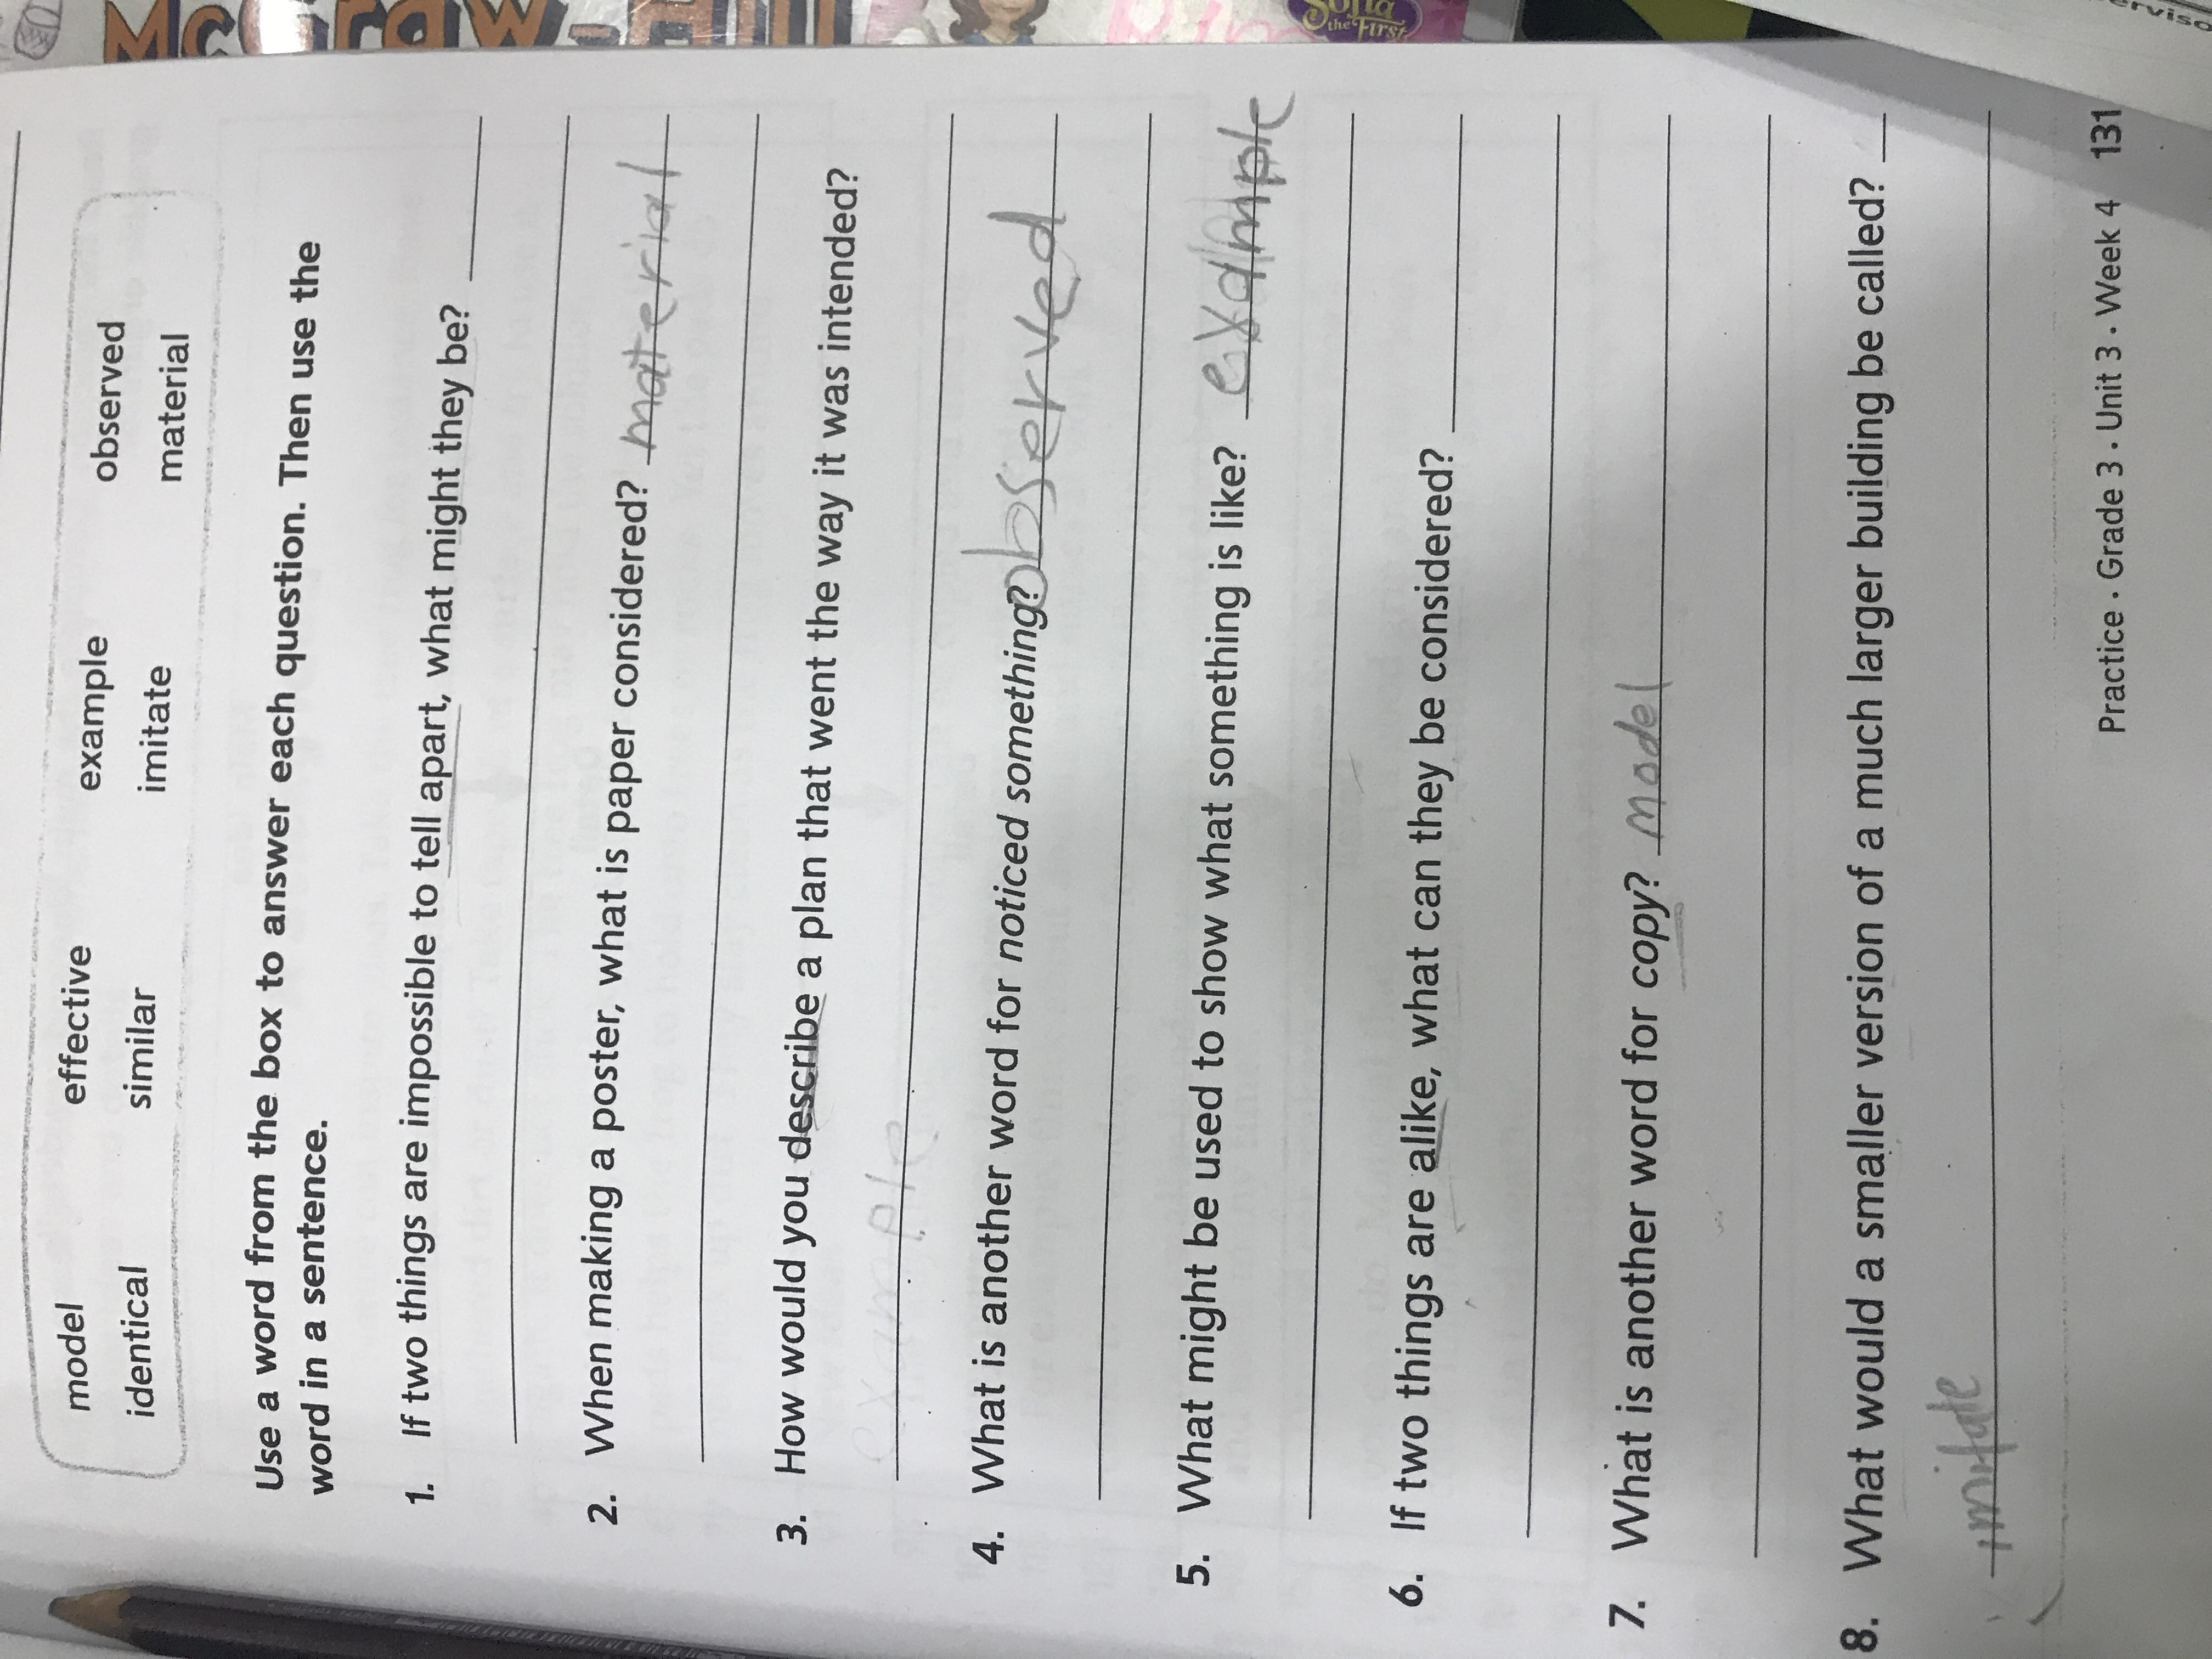 McGraw-Hill
Sofia
the First
model effective example observed
identical similar imitate material
Use a word from the box to answer each question. Then use the
word in a sentence.
1. If two things are impossible to tell apart, what might they be?
2. When making a poster, what is paper considered? material
3. How would you describe a plan that went the way it was intended?
example
4. What is another word for noticed something? observed
5. What might be used to show what something is like? example
6. If two things are alike, what can they be considered?
7. What is another word for copy? model
8. What would a smaller version of a much larger building be called?
imitate
Practice • Grade 3 • Unit 3 • Week 4 131